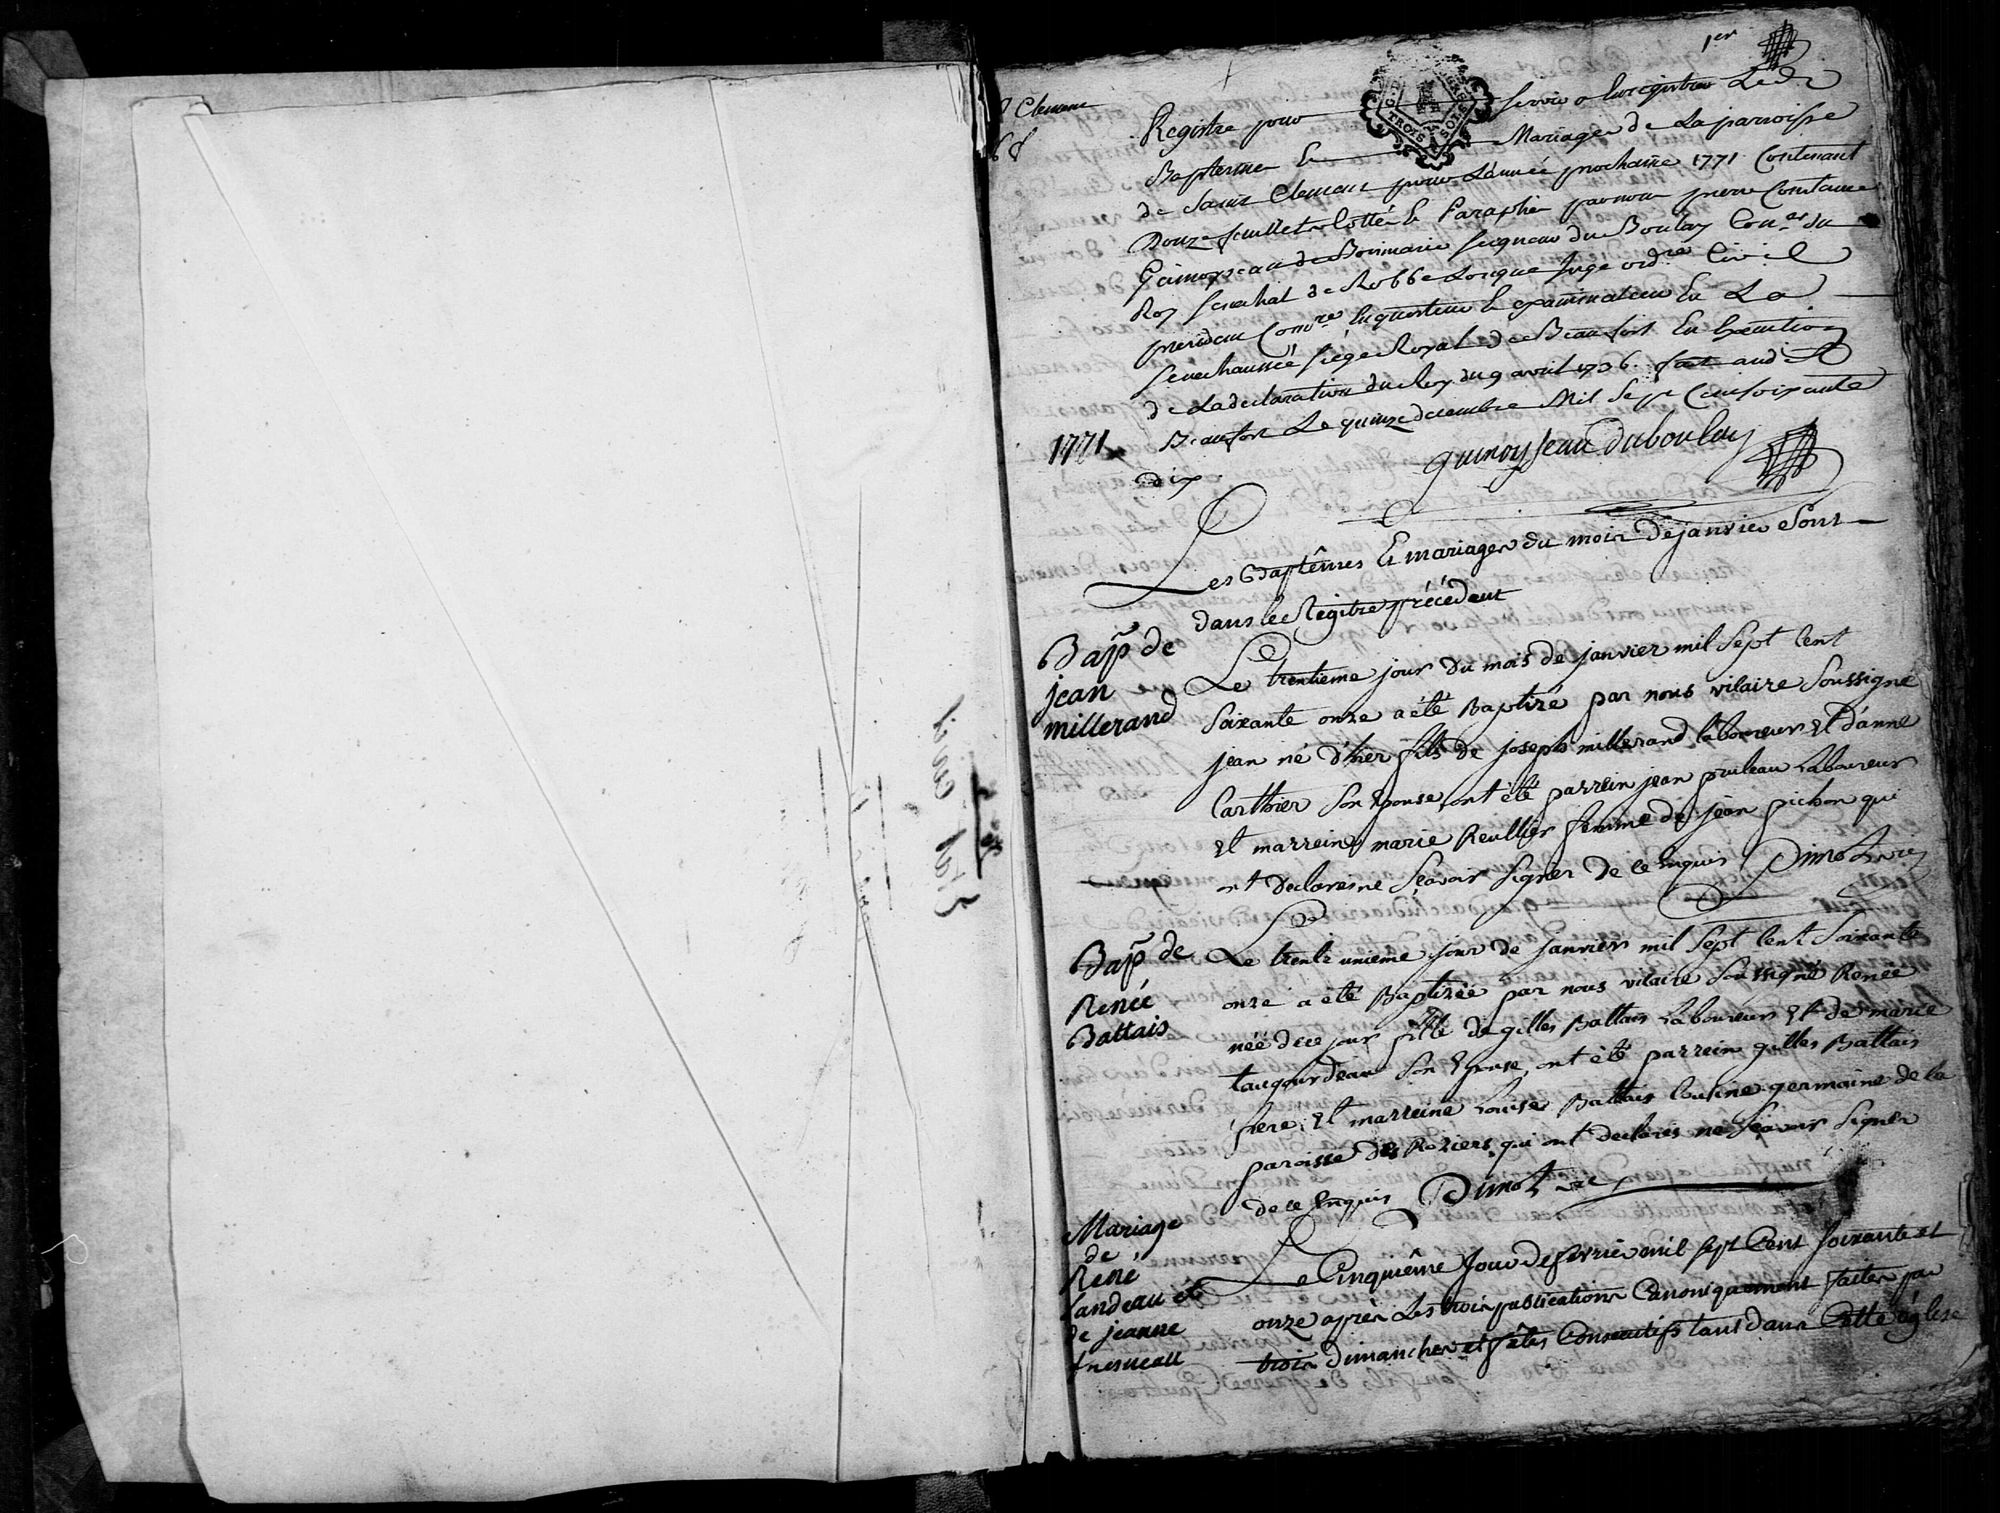 1er
St Clement
Registre pour servir a Enregistrer Les
G. D. TROIS SOLS
Baptesme Et Mariages de La parroisse
de Saint Clement pour L'année prochaine 1771 Contenant
Douze feuillets Cottés Et Paraphés par nous pierre Constance
Quinoysseau de Boismarie seigneur du Boulay Coner du
Roy senechal de Robbe Longue Juge ordre Civil
president Comre Enquesteur Et examinateur En La
senechaussée siège Royal de Beaufort En Execution
de La declaration du Roy du 9 avril 1736. fait audit
Beaufort Le quinze decembre Mil Sept Cent soixante
dix
quinoysseau duboulay
1771
Les Baptêmes Et mariages du mois de janvier Sont
dans le Régitre précédent
Bap de
jean
millerand
Le trentieme jour du mois de janvier mil Sept Cent
Soixante onze a été Baptizé par nous vicaire Soussigné
jean né d'hier fils de joseph millerand laboureur Et d'anne
Carthier Son Epouse, ont été parrein jean pruleau Laboureur
Et marreine marie Reullier femme de jean pichon qui
ont declaré ne Sçavoir Signer de ce Enquis Dimot vre
Bap de
Renée
Battais
Le trente unieme jour de janvier mil Sept Cent Soixante
onze a été Baptizée par nous vicaire Soussigné Renée
née de ce jour fille de gilles Battais Laboureur Et de marie
taugourdeau Son Epouse, ont été parrein gilles Battais
frere Et marreine Louise Battais Cousine germaine de la
paroisse des Roziers qui ont declarés ne Sçavoir Signer
de ce Enquis Dimot vre
Mariage
de
René
Landeau et
de jeanne
fresneau
Le Cinquiême Jour de fevrier mil sept Cent soixante et
onze après Les trois publications Canoniquement faites par
trois dimanches et fêtes Consecutifs tant dans Cette église